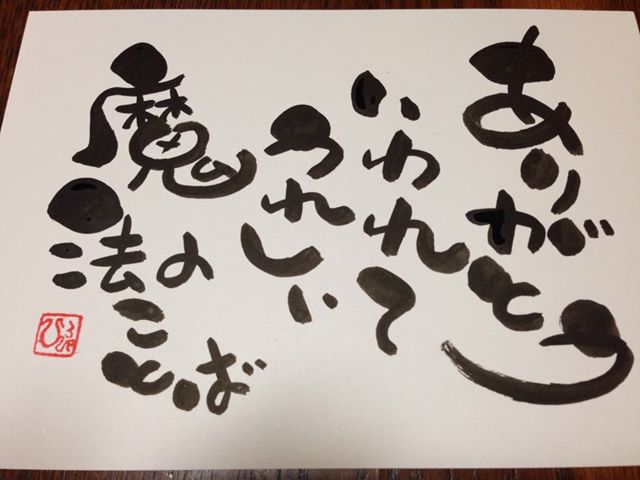 ありがとう
いわれて
うれしい
魔法の
ことば